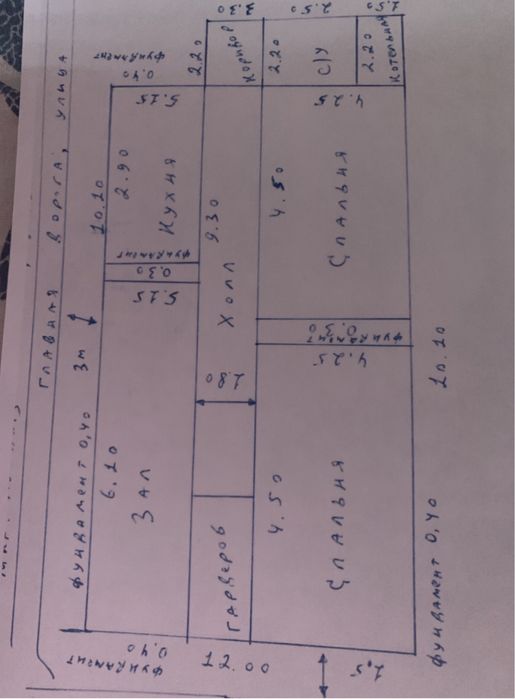 ГЛАВНАЯ ДОРОГА, УЛИЦА
3м
фундамент 0,40
10.10
фундамент
0,40
6.10
ЗАЛ
5.15
0.30
фундамент
2.90
КУХНЯ
5.15
2.20
3.30
КОРИДОР
2.20
2.50
С/У
1.50
2.20
КОТЕЛЬНАЯ
ГАРДЕРОБ
1.80
ХОЛЛ
9.30
4.50
СПАЛЬНЯ
4.25
0.30
фундамент
4.50
СПАЛЬНЯ
4.25
фундамент
0,40
12.00
1,5
фундамент 0,40
10.10